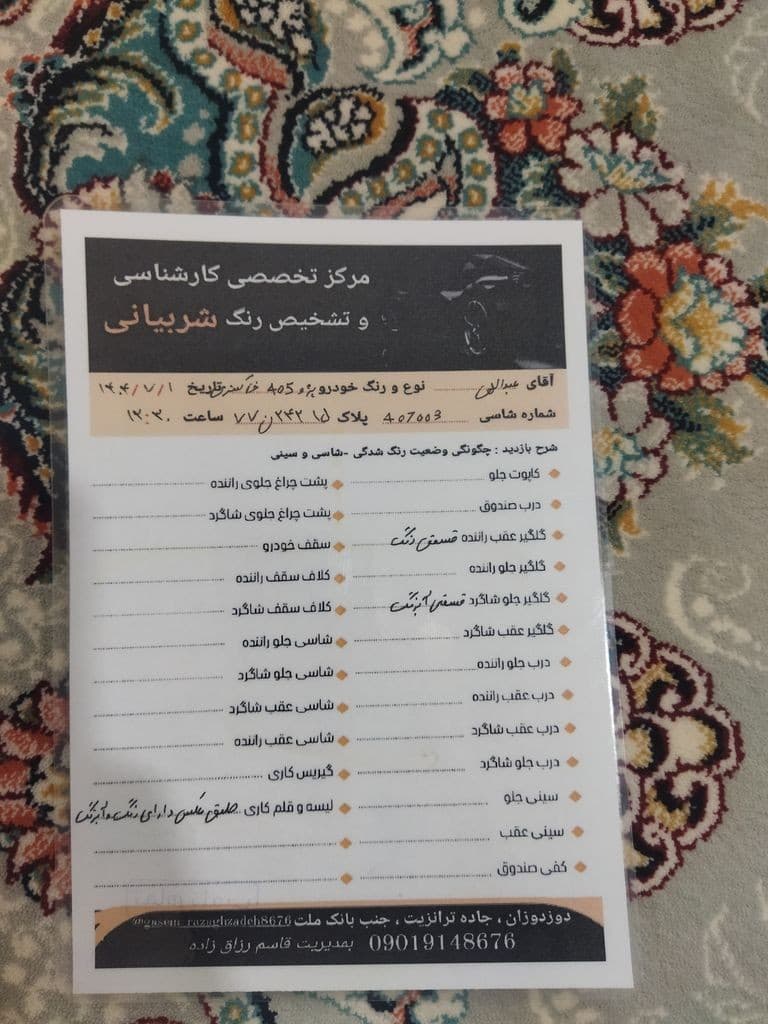 مرکز تخصصی کارشناسی
و تشخیص رنگ شربیانی
آقای عبدالهی نوع و رنگ خودرو پژو 405 خاکستری تاریخ ۱۴۰۴/۷/۱
شماره شاسی 407003 پلاک ۱۵ ۲۴۲ن۷۷ ساعت ۱۲:۳۰
شرح بازدید : چگونگی وضعیت رنگ شدگی -شاسی و سینی
کاپوت جلو
درب صندوق
گلگیر عقب راننده قسمتی رنگ
گلگیر جلو راننده
گلگیر جلو شاگرد قسمتی آبرنگ
گلگیر عقب شاگرد
درب جلو راننده
درب عقب راننده
درب عقب شاگرد
درب جلو شاگرد
سینی جلو
سینی عقب
کفی صندوق
پشت چراغ جلوی راننده
پشت چراغ جلوی شاگرد
سقف خودرو
کلاف سقف راننده
کلاف سقف شاگرد
شاسی جلو راننده
شاسی جلو شاگرد
شاسی عقب شاگرد
شاسی عقب راننده
گیریس کاری
لیسه و قلم کاری طبق عکس دارای رنگ و آبرنگ
دوزدوزان ، جاده ترانزیت ، جنب بانک ملت @gasem_razaghzadeh8676
09019148676 بمدیریت قاسم رزاق زاده